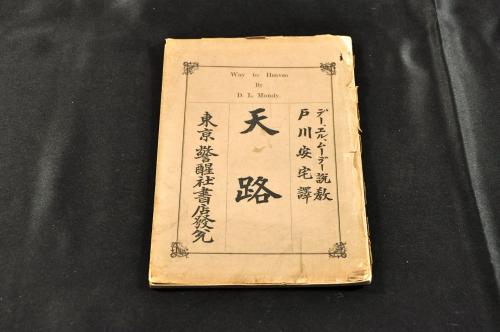 Way to Heaven
By
D. L. Moody.
デー、エル、ムーデー説教
戸川安宅譯
天路
東京警醒社書店發兌